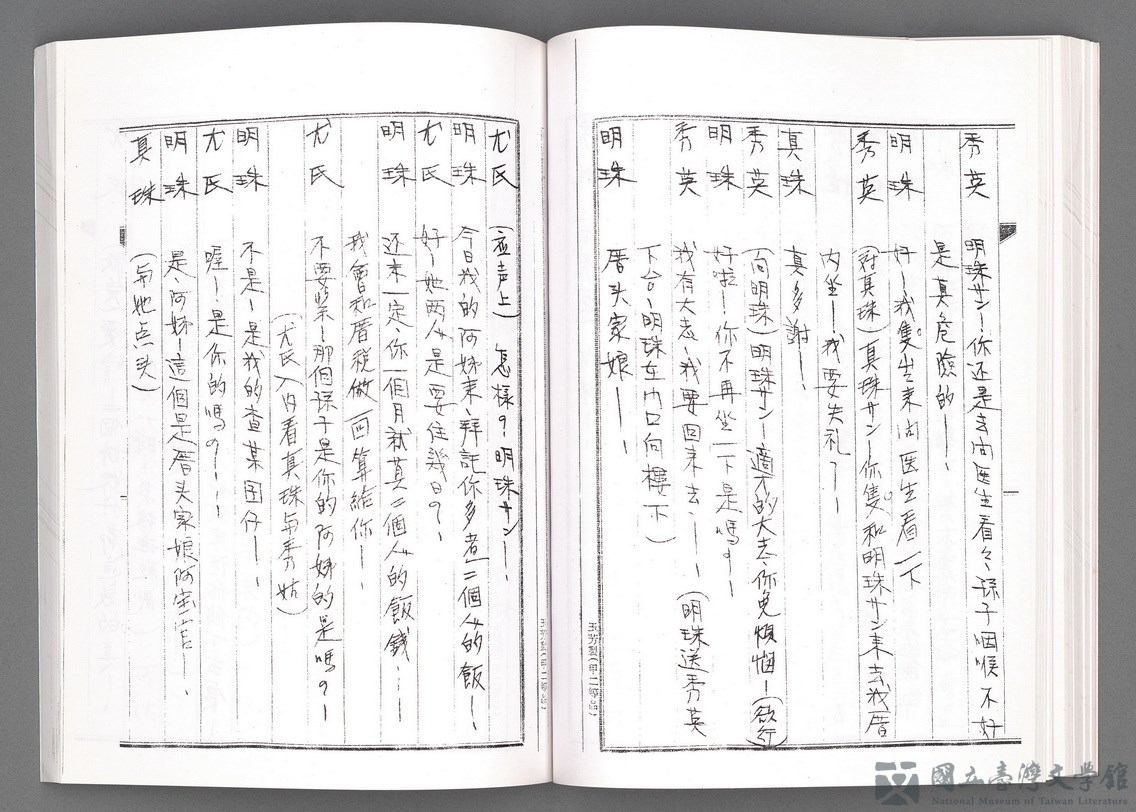 秀英 明珠サン－你还是去向医生看々、孫子咽喉不好
是真危險的－－、
明珠 好－我隻出來向医生看一下
秀英 (对真珠)真珠サン－你隻和明珠サン來去我厝
內坐－我要失礼了－－
真珠 真多謝－－
秀英 (向明珠)明珠サン－適才的大志、你免煩惱－(欲行)
明珠 好啦－你不再坐一下是嗎？－
秀英 我有大志、我要回來去－－(明珠送秀英
下台、明珠在门口向樓下)
明珠 厝头家娘－－、
尤氏 (应声上) 怎樣？、明珠サン－－、
明珠 今日我的阿姊來、拜託你多煮二個人的飯－－、
尤氏 好－她两人是要住幾日？、
明珠 还未一定、你一個月就算二個人的飯錢…－
我會和厝稅做一四算給你－－、
尤氏 不要紧－那個孫子是你的阿姊的是嗎？－
(尤氏入內看真珠与秀姑)
明珠 不是－是我的查某囝仔－－、
尤氏 喔－、是你的嗎？－、、
明珠 是、阿姊－這個是厝头家娘阿宝官－－、
真珠 (与她点头)
玉芳製(甲二等品)
國立臺灣文學館
National Museum of Taiwan Literature